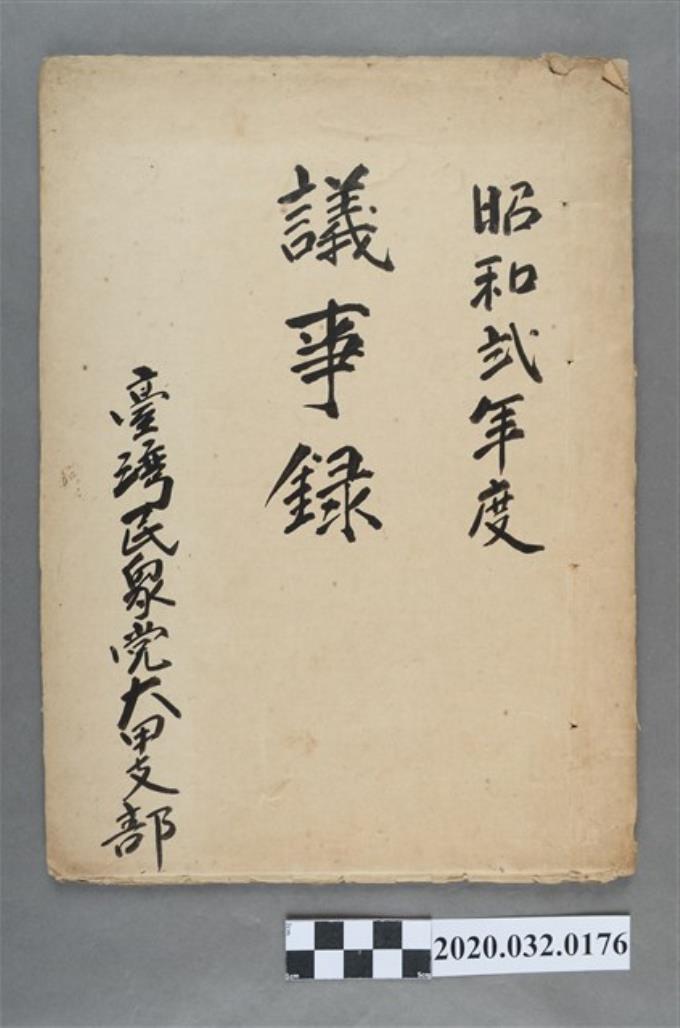 昭和弐年度
議事録
臺湾民衆党大甲支部
2020.032.0176